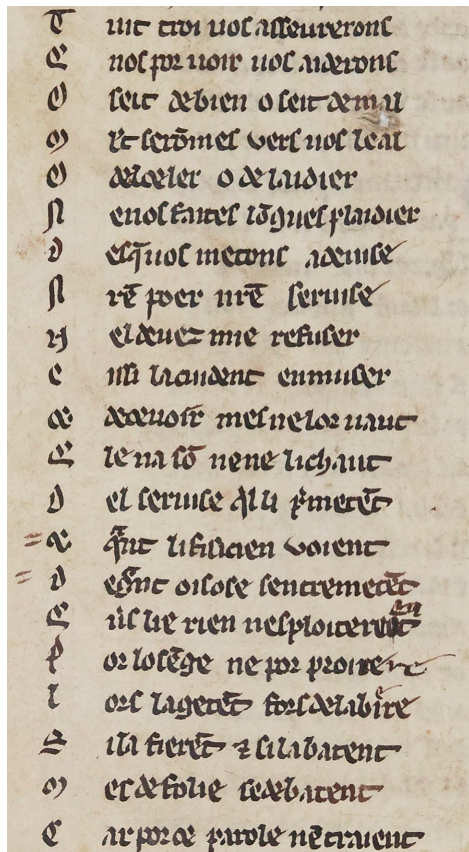 T uit troi uos asseurerons
E nos por uoir uos aiderons
O seit de bien o seit de mal
M lt serōmes vers uos leal
O de celer o de laidier
N e uos faites lōgues plaidier
D es q̄ uos metons a deuise
N rē poer nrē seruise
N el deuez mie refuser
C issi lacuident enmuser
de deceuoir mes ne lor uaut
E le na sō ne ne li chaut
D el seruise qⁱl li p̄metēt
Qᵃnt li fisicien voient
D e gᵃnt oisose sentremetēt
E il se rien nesploiterent
P or losēge ne por proiere
L ors lagetēt fors de la biere
S i la fierēt ⁊ si la batent
M es de folie se debatent
C ar por ce parole nē traient